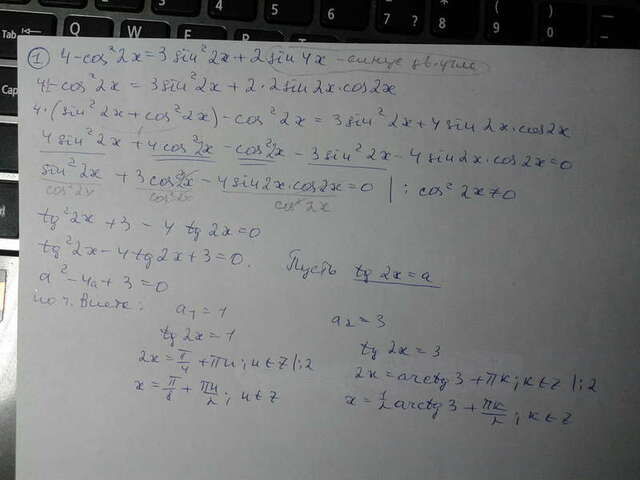 Q W E R T Y U 7 ? 8 9
① 4-cos²2x=3sin²2x+2sin4x -синус дв.угла
4-cos²2x=3sin²2x+2·2sin2x·cos2x
4·(sin²2x+cos²2x)-cos²2x=3sin²2x+4sin2x·cos2x
4sin²2x+4cos²2x-cos²2x-3sin²2x-4sin2x·cos2x=0
sin²2x+3cos²2x-4sin2x·cos2x=0 |:cos²2x≠0
cos²2x cos²2x cos²2x
tg²2x+3-4tg2x=0
tg²2x-4tg2x+3=0. Пусть tg2x=a
a²-4a+3=0
по т. Виета: a₁=1 a₂=3
tg2x=1 tg2x=3
2x=π/4+πn; n∈Z |:2 2x=arctg3+πk; k∈Z |:2
x=π/8+πn/2; n∈Z x=½arctg3+πk/2; k∈Z